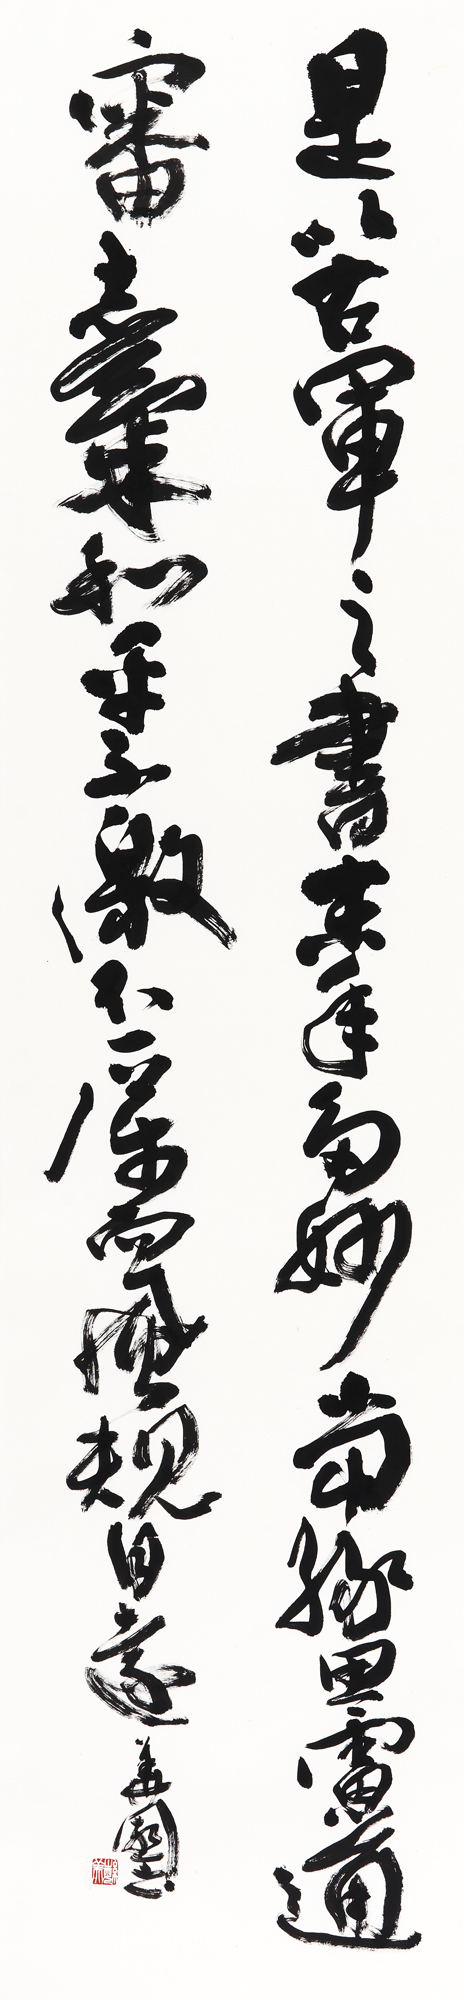 是以右軍之書末年多妙當緣思慮通
審志氣和平不激不厲而風規自遠